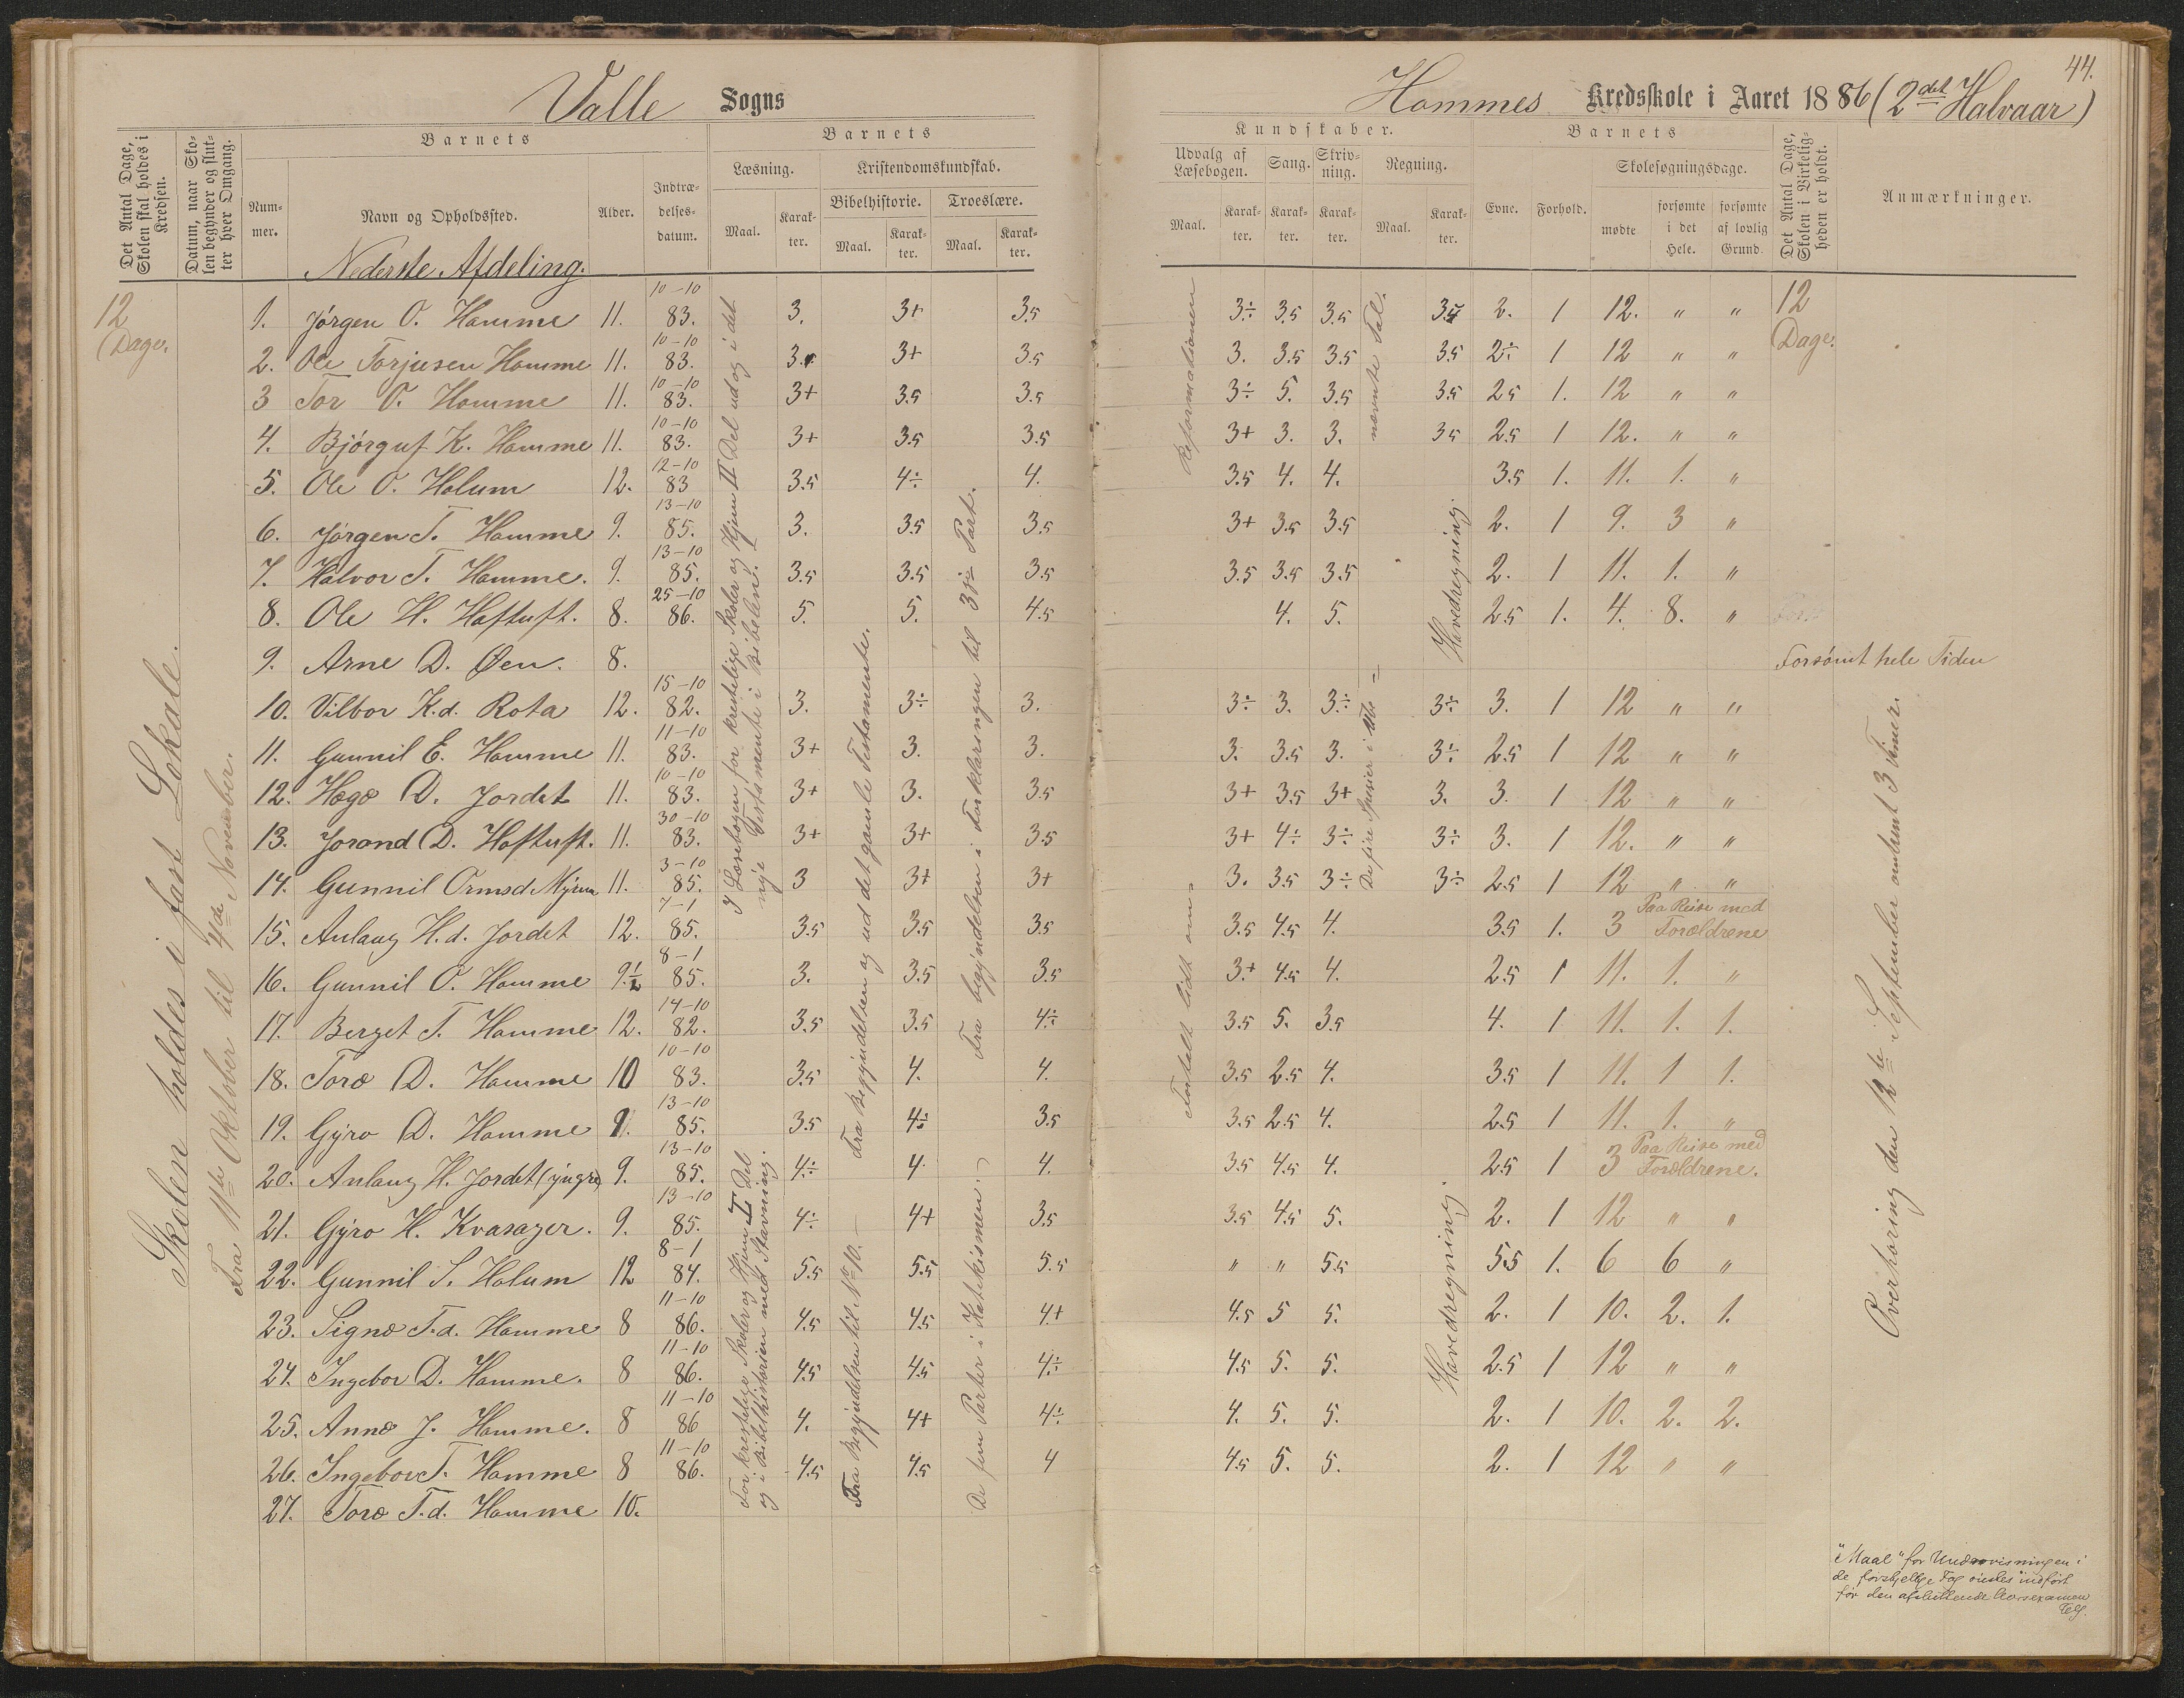 44.
Valle Sogns
Hommes Kredsskole i Aaret 1886 (2det Halvaar)
Det Antal Dage, Skolen skal holdes i Kredsen.
Datum, naar Skolen begynder og slutter hver Omgang.
Barnets
Nummer.
Navn og Opholdssted.
Alder.
Indtrædelsesdatum.
Barnets
Læsning.
Maal.
Karakter.
Kristendomskundskab.
Bibelhistorie.
Maal.
Karakter.
Troeslære.
Maal.
Karakter.
Kundskaber.
Udvalg af Læsebogen.
Maal.
Karakter.
Sang.
Karakter.
Skrivning.
Karakter.
Regning.
Maal.
Karakter.
Barnets
Evne.
Forhold.
Skolesøgningsdage.
mødte
forsømte i det Hele.
forsømte af lovlig Grund.
Det Antal Dage, Skolen i Virkeligheden er holdt.
Anmærkninger.
Nederste Afdeling.
12 Dage.
12 Dage.
1. Jørgen O. Homme 11. 10-10 83. 3. 3+ 3.5 3÷ 3.5 3.5 3.5 2. 1 12. " "
2. Ole Torjusen Homme 11. 10-10 83. 3. 3+ 3.5 3. 3.5 3.5 3.5 2÷ 1 12 " "
3 Tor O. Homme 11. 10-10 83. 3+ 3.5 3.5 3÷ 5. 3.5 3.5 2.5 1. 12 " "
4. Bjórguf K. Homme 11. 10-10 83. 3+ 3.5 3.5 3+ 3. 3. 3.5 2.5 1 12. " "
5. Ole O. Holum 12. 12-10 83 3.5 4÷ 4. 3.5 4. 4. 3.5 1. 11. 1. "
6. Jørgen T. Homme 9. 13-10 85. 3. 3.5 3.5 3+ 3.5 3.5 2. 1 9. 3 "
7. Halvor T. Homme. 9. 13-10 85. 3.5 3.5 3.5 3.5 3.5 3.5 2. 1 11. 1. "
8. Ole H. Hoftuft. 8. 25-10 86. 5. 5. 4.5 4. 5. 2.5 1. 4. 8. "
9. Arne D. Øen. 8. Forsømt hele Tiden
10. Vilbor K.d. Rota 12. 15-10 82. 3. 3÷ 3. 3÷ 3. 3÷ 3÷ 3. 1 12 " "
11. Gunnil E. Homme 11. 11-10 83. 3+ 3. 3. 3. 3.5 3. 3÷ 2.5 1 12 " "
12. Hægæ D. Jordet 11. 10-10 83. 3+ 3. 3.5 3+ 3.5 3+ 3. 3. 1 12 " "
13. Jorand D. Hoftuft. 11. 30-10 83. 3+ 3+ 3.5 3+ 4÷ 3÷ 3÷ 3. 1 12. " "
14. Gunnil Ormsd. Myrum 11. 3-10 85. 3 3+ 3+ 3. 3.5 3÷ 3÷ 2.5 1 12 " "
15. Anlaug H.d. Jordet 12. 7-1 85. 3.5 3.5 3.5 3.5 4.5 4. 3.5 1. 3 Paa Reise med Forældrene
16. Gunnil O. Homme 9½ 8-1 85. 3. 3.5 3.5 3+ 4.5 4. 2.5 1 11. 1. "
17. Berget T. Homme 12. 14-10 82. 3.5 3.5 4÷ 3.5 5. 3.5 4. 1 11. 1. 1.
18. Toræ D. Homme 10 10-10 83. 3.5 4. 4. 3.5 2.5 4. 3.5 1 11. 1 1.
19. Gyro D. Homme 9. 13-10 85. 3.5 4÷ 3.5 3.5 2.5 4. 2.5 1 11. 1. "
20. Anlaug H. Jordet (yngre) 9. 13-10 85. 4÷ 4. 4. 3.5 4.5 4. 2.5 1 3 Paa Reise med Forældrene.
21. Gyro H. Kvasager. 9. 13-10 85. 4÷ 4+ 3.5 3.5 4.5 5. 2. 1 12 " "
22. Gunnil S. Holum 12 8-1 84. 5.5 5.5 5.5 " " 5.5 5.5 1. 6 6 "
23. Signe T.d. Homme 8 11-10 86. 4.5 4.5 4+ 4.5 5 5. 2. 1 10. 2. 1.
24. Ingebor D. Homme. 8 11-10 86. 4.5 4.5 4÷ 4.5 5. 5. 2.5 1 12 " "
25. Anne J. Homme. 8 11-10 86 4. 4+ 4÷ 4. 5. 5. 2. 1 10. 2. 2.
26. Ingebor T. Homme 8 11-10 86. 4.5 4.5 4 4.5 5. 5. 2. 1 12 " "
27. Toræ T.d. Homme 10.
Skolen holdes i fast Lokale.
Fra 11te Oktober til 4de November.
I Læsebogen for kristelige Skoler og Hjem II Del ud og i det
nye Testamente i Bibelen.
For kristelige Skoler og Hjem I Del
og i Bibelhistorien med Stavning.
Fra Begyndelsen og ud det gamle Testamente.
Fra Begyndelsen til No 10.
Fra begyndelsen i Forklaringen til 3die Part.
De fem Parter i Katekismen.
Fortalt lidt om Reformationen
De fire Spesier i Ube=
nævnte Tal.
Hovedregning.
Hovedregning.
Overhøring den 12te September omtrent 3 Timer.
"Maal" for Undervisningen i
de forskjellige Fag ønskes indført
før den afsluttende Aarsexamen